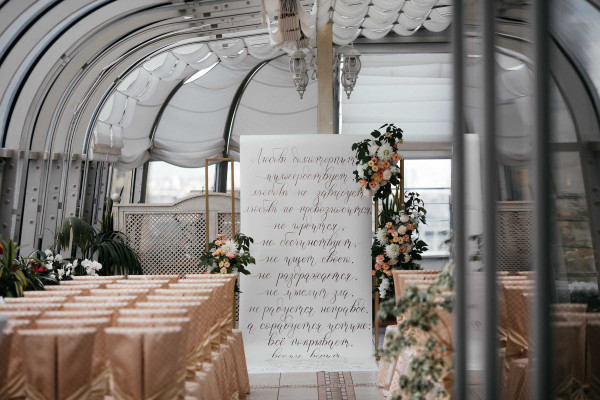 Любовь долготерпит,
милосердствует,
любовь не завидует,
любовь не превозносится,
не гордится,
не бесчинствует,
не ищет своего,
не раздражается,
не мыслит зла,
не радуется неправде,
а сорадуется истине;
всё покрывает,
всему верит